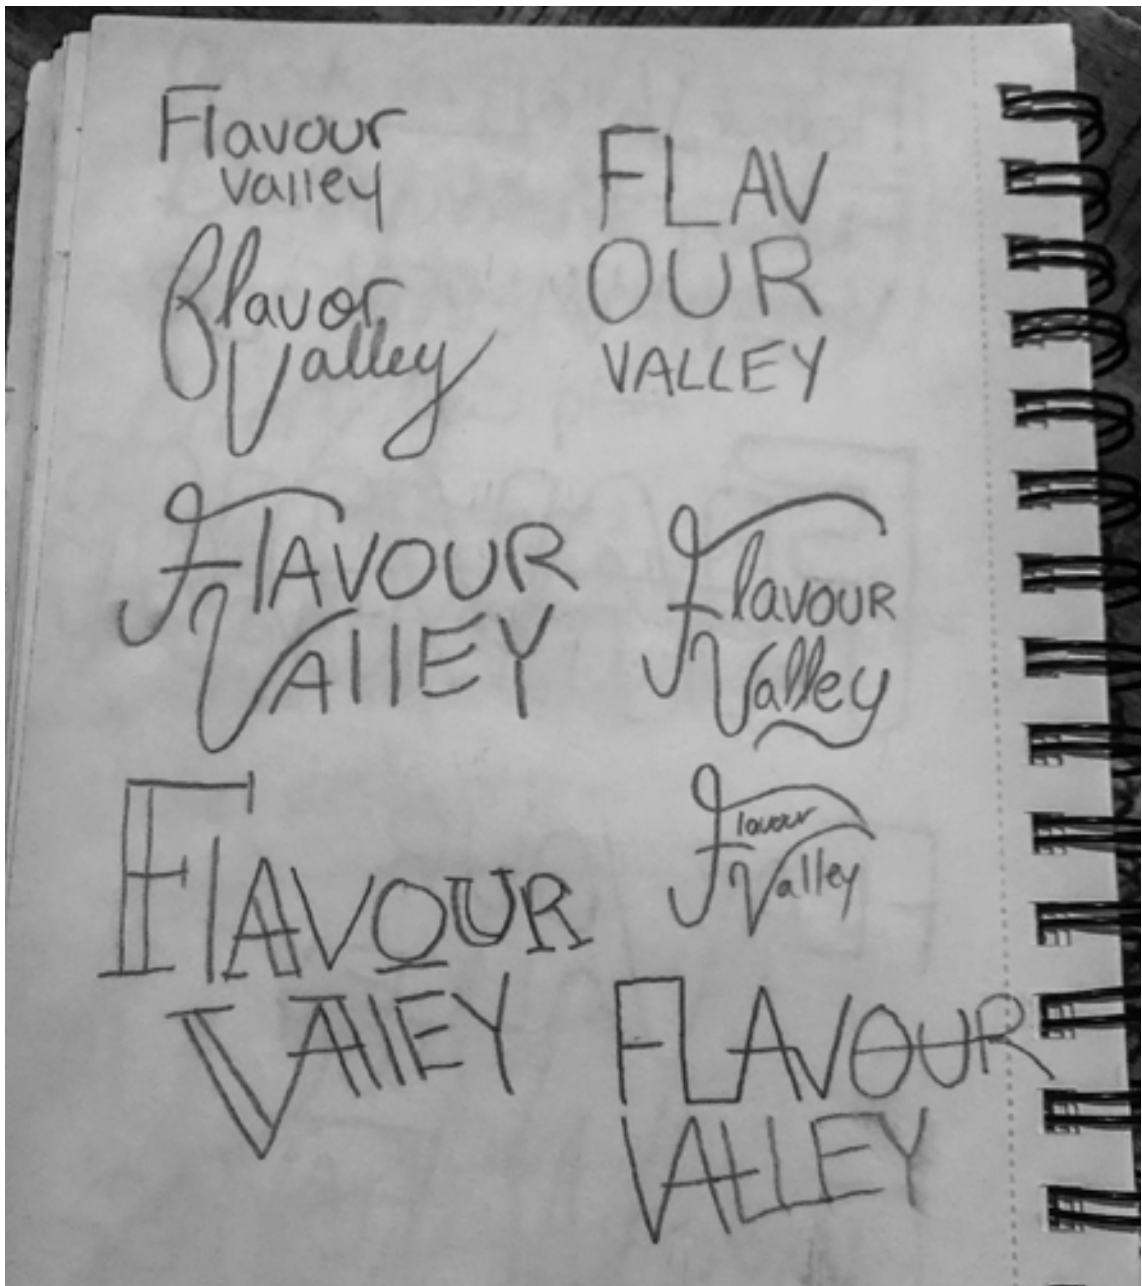 Flavour
valley
FLAV
OUR
VALLEY
flavor
Valley
FlAVOUR
VAllEY
FlavouR
Valley
FlAVOUR
VAllEY
Flavour
Valley
FLAVOUR
VALLEY